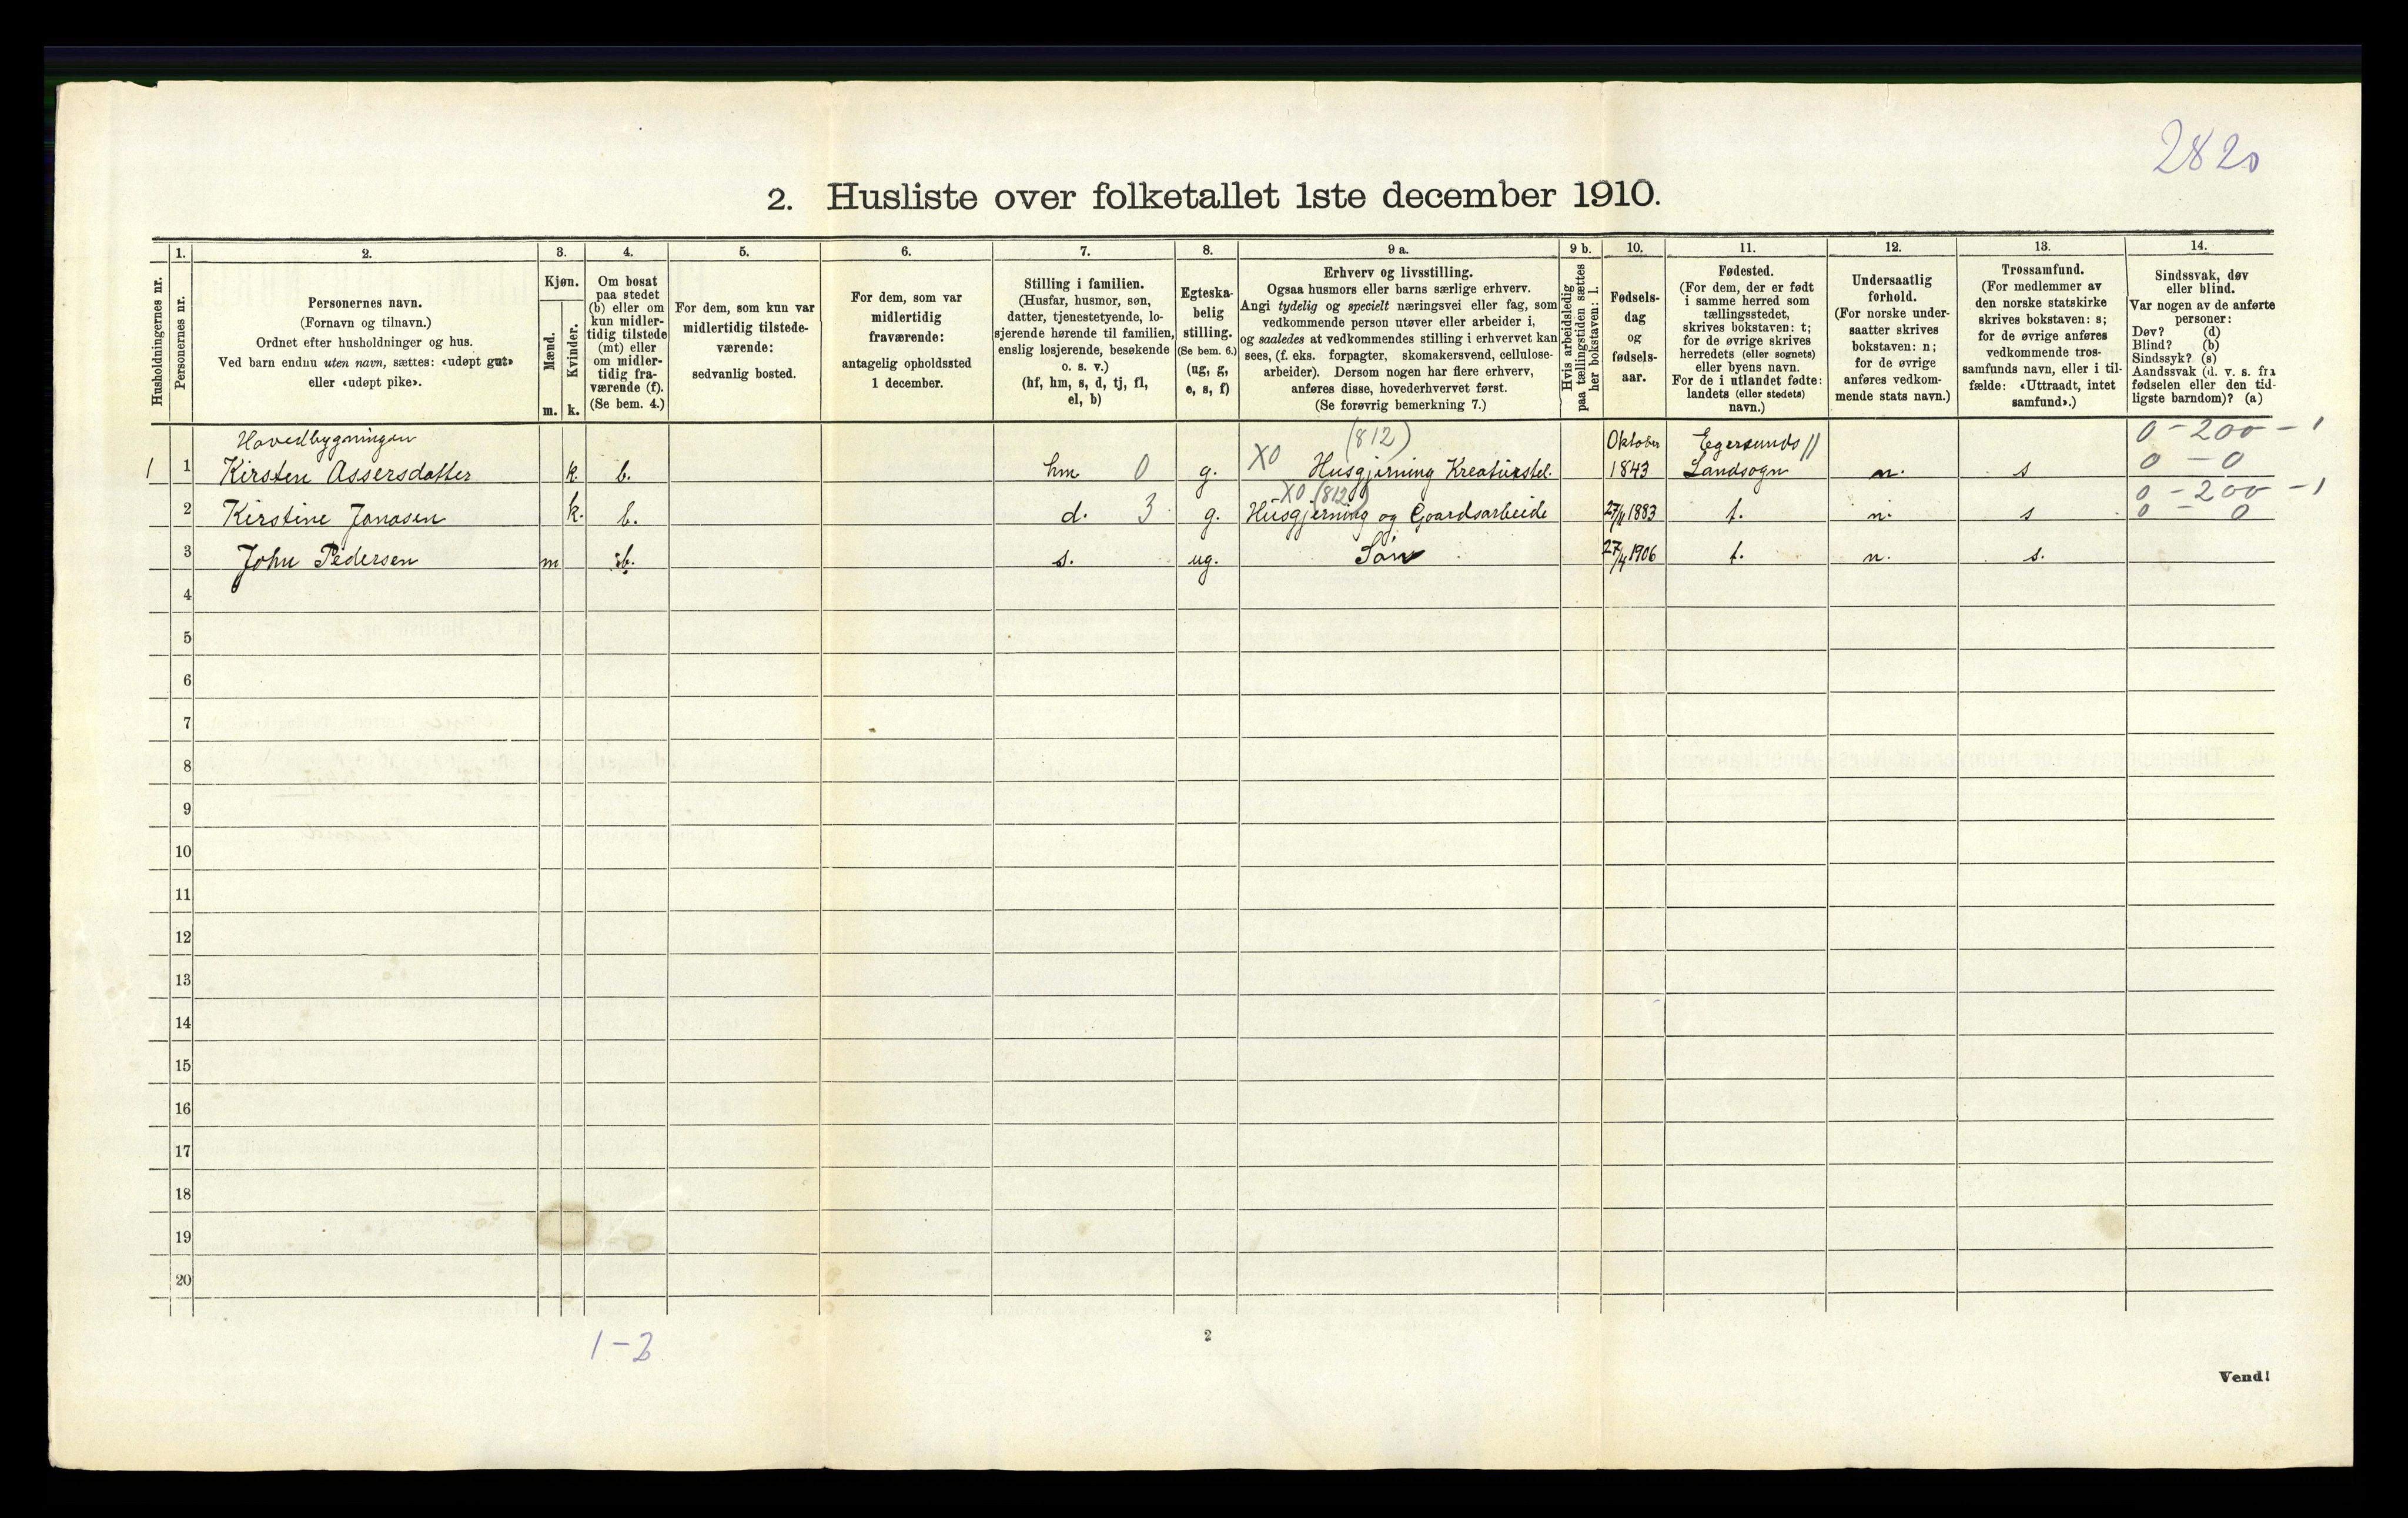 2820
2. Husliste over folketallet 1ste december 1910.
Husholdningernes nr.
1.
Personernes nr.
2.
Personernes navn.
(Fornavn og tilnavn.)
Ordnet efter husholdninger og hus.
Ved barn endnu uten navn, sættes: «udøpt gut»
eller «udøpt pike».
3.
Kjøn.
Mænd.
Kvinder.
m. k.
4.
Om bosat
paa stedet
(b) eller om
kun midler-
tidig tilstede
(mt) eller
om midler-
tidig fra-
værende (f).
(Se bem. 4.)
5.
For dem, som kun var
midlertidig tilstede-
værende:
sedvanlig bosted.
6.
For dem, som var
midlertidig
fraværende:
antagelig opholdssted
1 december.
7.
Stilling i familien.
(Husfar, husmor, søn,
datter, tjenestetyende, lo-
sjerende hørende til familien,
enslig losjerende, besøkende
o. s. v.)
(hf, hm, s, d, tj, fl,
el, b)
8.
Egteska-
belig
stilling.
(Se bem. 6.)
(ug, g,
e, s, f)
9 a.
Erhverv og livsstilling.
Ogsaa husmors eller barns særlige erhverv.
Angi tydelig og specielt næringsvei eller fag, som
vedkommende person utøver eller arbeider i,
og saaledes at vedkommendes stilling i erhvervet kan
sees, (f. eks. forpagter, skomakersvend, cellulose-
arbeider). Dersom nogen har flere erhverv,
anføres disse, hovederhvervet først.
(Se forøvrig bemerkning 7.)
9 b.
Hvis arbeidsledig
paa tællingstiden sættes
her bokstaven: l.
10.
Fødsels-
dag
og
fødsels-
aar.
11.
Fødested.
(For dem, der er født
i samme herred som
tællingsstedet,
skrives bokstaven: t;
for de øvrige skrives
herredets (eller sognets)
eller byens navn.
For de i utlandet fødte:
landets (eller stedets)
navn.)
12.
Undersaatlig
forhold.
(For norske under-
saatter skrives
bokstaven: n;
for de øvrige
anføres vedkom-
mende stats navn.)
13.
Trossamfund.
(For medlemmer av
den norske statskirke
skrives bokstaven: s;
for de øvrige anføres
vedkommende tros-
samfunds navn, eller i til-
fælde: «Uttraadt, intet
samfund».)
14.
Sindssvak, døv
eller blind.
Var nogen av de anførte
personer:
Døv? (d)
Blind? (b)
Sindssyk? (s)
Aandssvak (d. v. s. fra
fødselen eller den tid-
ligste barndom)? (a)
Hovedbygningen (812) Oktober Egersunds // 0-200-1
1 1 Kirsten Assersdatter k. b. hm 0 g. XO Husgjerning Kreaturstel. 1843 Landsogn n. s 0-0
XO (812) 0-200-1
2 Kirstine Jonasen k. b. d. 3 g. Husgjerning og Gaardsarbeide 27/11 1883 t. n. s 0-0
3 John Pedersen m b. s. ug. Søn 27/4 1906 t. n. s.
4
5
6
7
8
9
10
11
12
13
14
15
16
17
18
19
20
1-2
2
Vend!